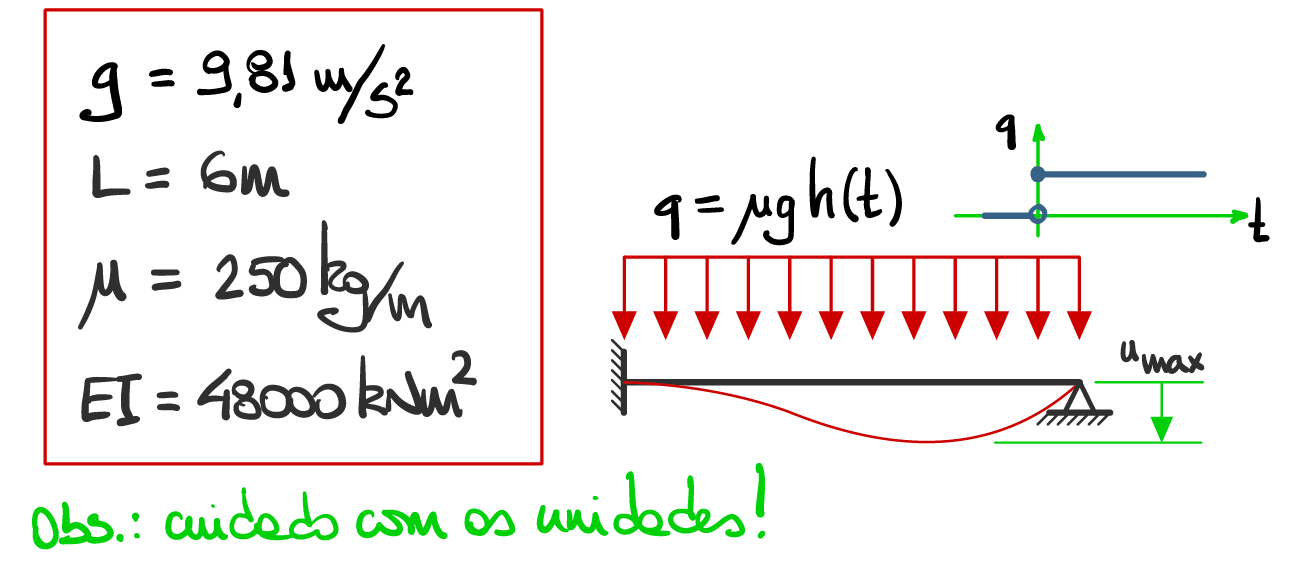 g = 9,81 m/s²
L = 6m
μ = 250 kg/m
EI = 48000 kNm²
q
t
q = μg h(t)
u max
Obs.: cuidado com as unidades!